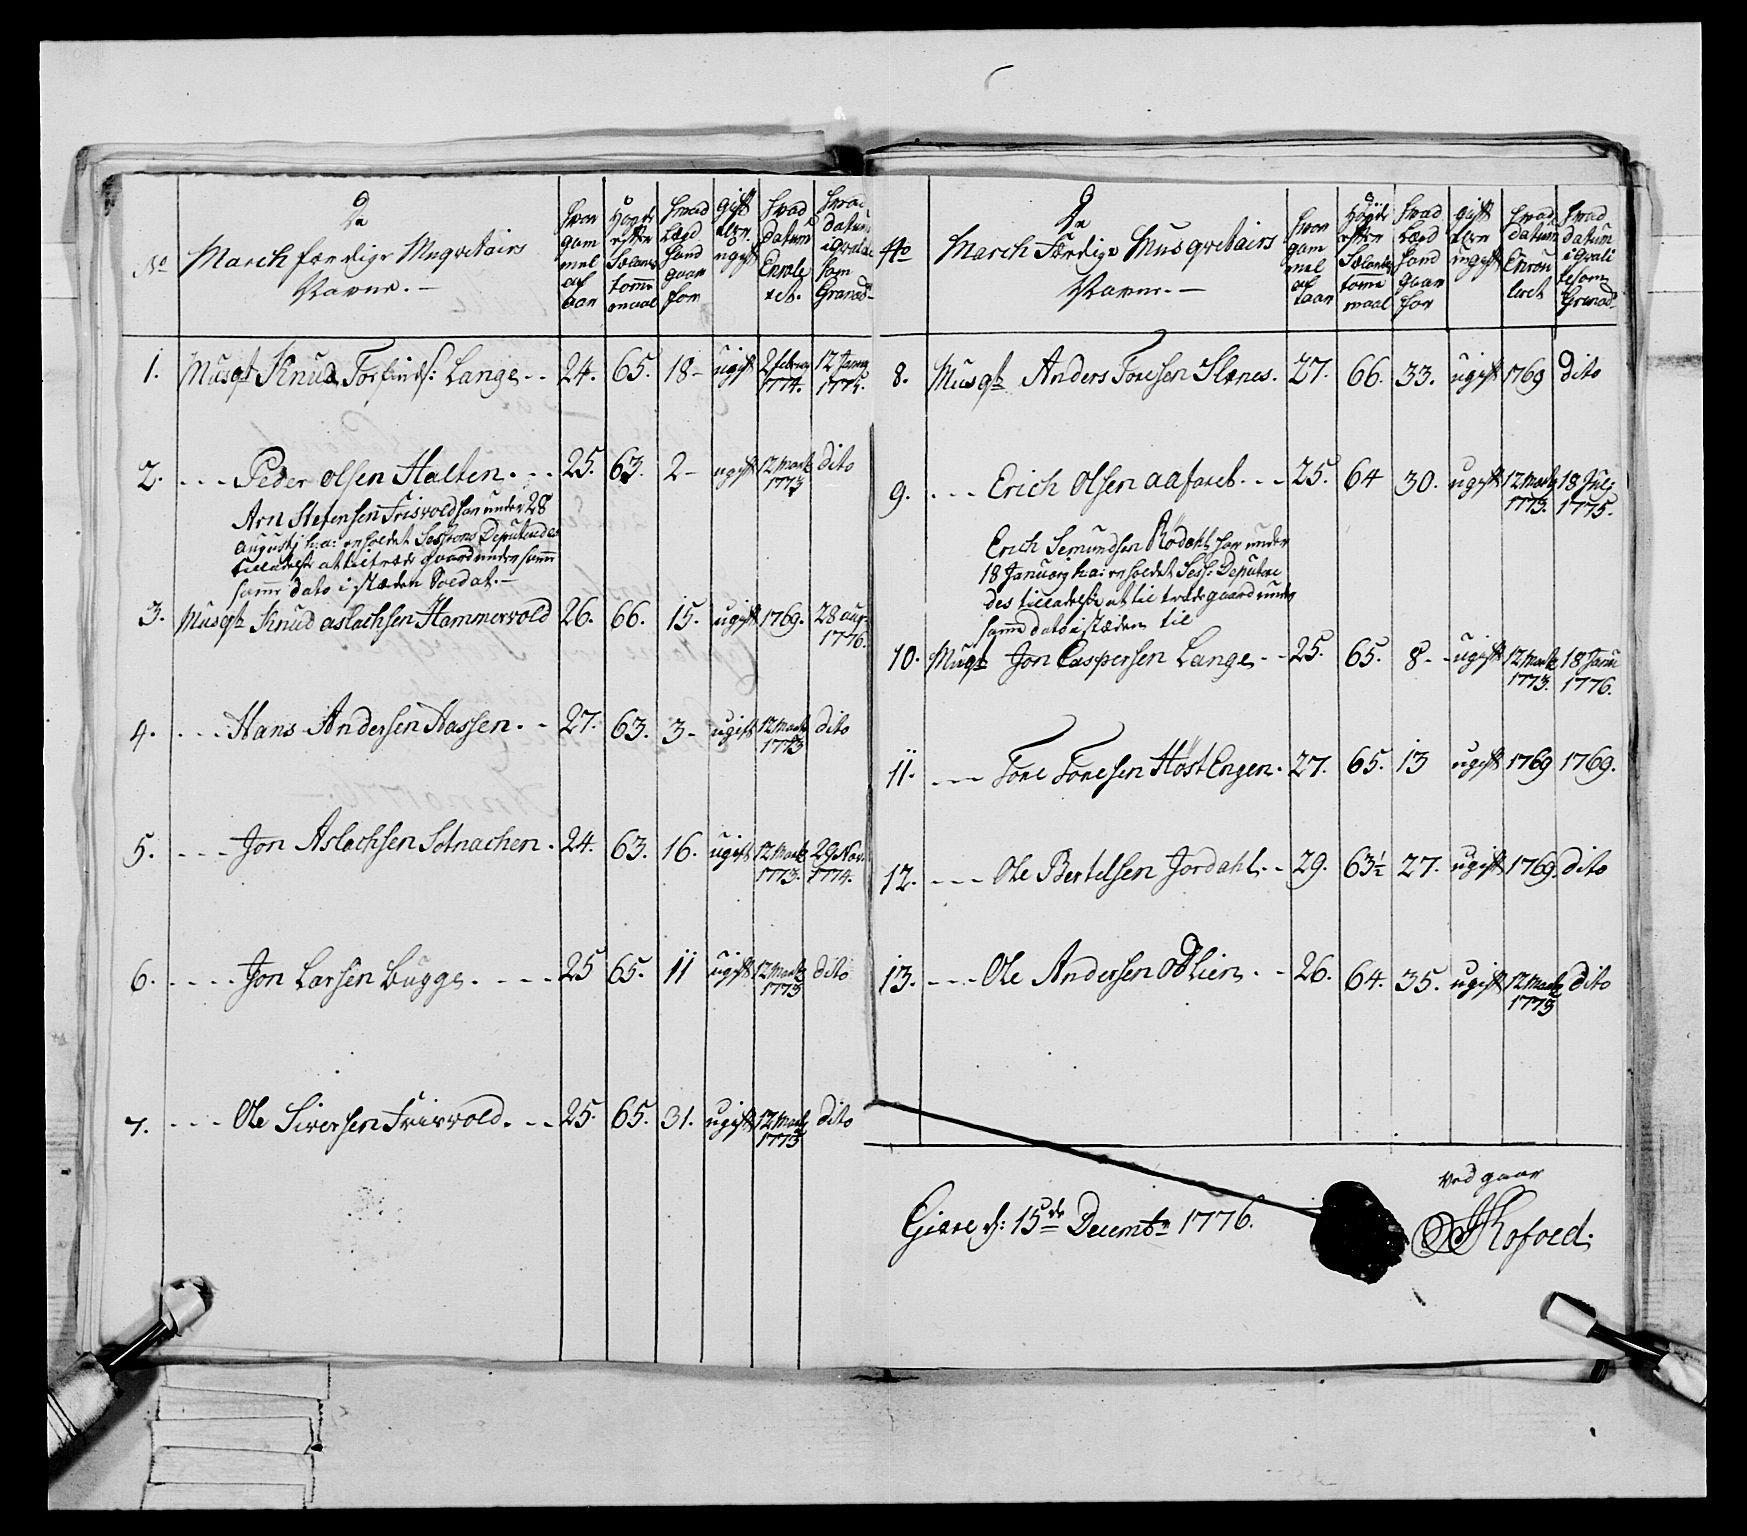 No
De
March færdige Musqvetairs
Navne. —
hvor gam mel af aar
Høyde efter Sælands tomme maal
hvad Lægd hand gaar for
gift eller ugift
hvad datum Enrole ret.
hvad datum i qvalite som Granad
1. Musqt Knud Torfinds: Lange - - 24. 65. 18 - ugift 2 febru 1774. 12 Janu 1774.
2. - - - Peder Olsen Halten. - - 25. 63. 2 - ugift 12 Martz 1773 dito
Arn Stefensen Frisvold har under 28
Augustj h: a: erholdet Sessions Deputendes
tilladelse at tiltræde gaard under samme
samme dato i stæden Soldat. —
3. Musqt Knud Aslachsen Hammervold 26. 66. 15. ugift 1769. 28 aug: 1776.
4. - - - Hans Andersen Hassen. - 27. 63. 3 - ugift 12 Martz 1773 dito
5. - - - Jon Aslachsen Sotnachen. 24. 63. 16. ugift 12 Martz 1773. 29 Nov: 1774.
6. - - - - Jon Larsen Bugge. - - - - 25 65. 11 ugift 12 Martz 1773 dito
7. - - - Ole Siversen Frisvold. - - 25. 65. 31. ugift 12 Martz 1773 dito
No
De
March Færdige Musqvetairs
Navne. —
hvor gam mel af aar
Høyde efter Sælands tome maal
hvad Lægd hand gaar for
gift eller ugift
hvad datum Enrou leret
hvad datum i qvali te som Granad
8. Musqt Anders Toresen Slenes. 27. 66. 33. ugift 1769 dito
9. - - - Erich Olsen Aafaret. - - - 25. 64 30. ugift 12 Martz 1773. 18 Julj 1775.
Erich Semundsen Rødahl har under
18 Januarj h: a: erholdet Sess: Deputere
des tilladelse at til træde gaard under
samme dato i stæden til
10. Musqt Jon Caspersen Lange - - 25. 65. 8 - - ugift 12 Martz 1773. 18 Janu 1776.
11. - - - Tore Toresen Høst Engen. 27. 65. 13 ugift 1769 1769.
12. - - - Ole Bertelsen Jordahl. - - 29. 63½ 27. ugift 1769. dito
13. - - - Ole Andersen Ødlien. - - 26. 64. 35. ugift 12 Martz 1773 dito
Giere d: 15de Decembr 1776.
ved gaar
Kofoed.